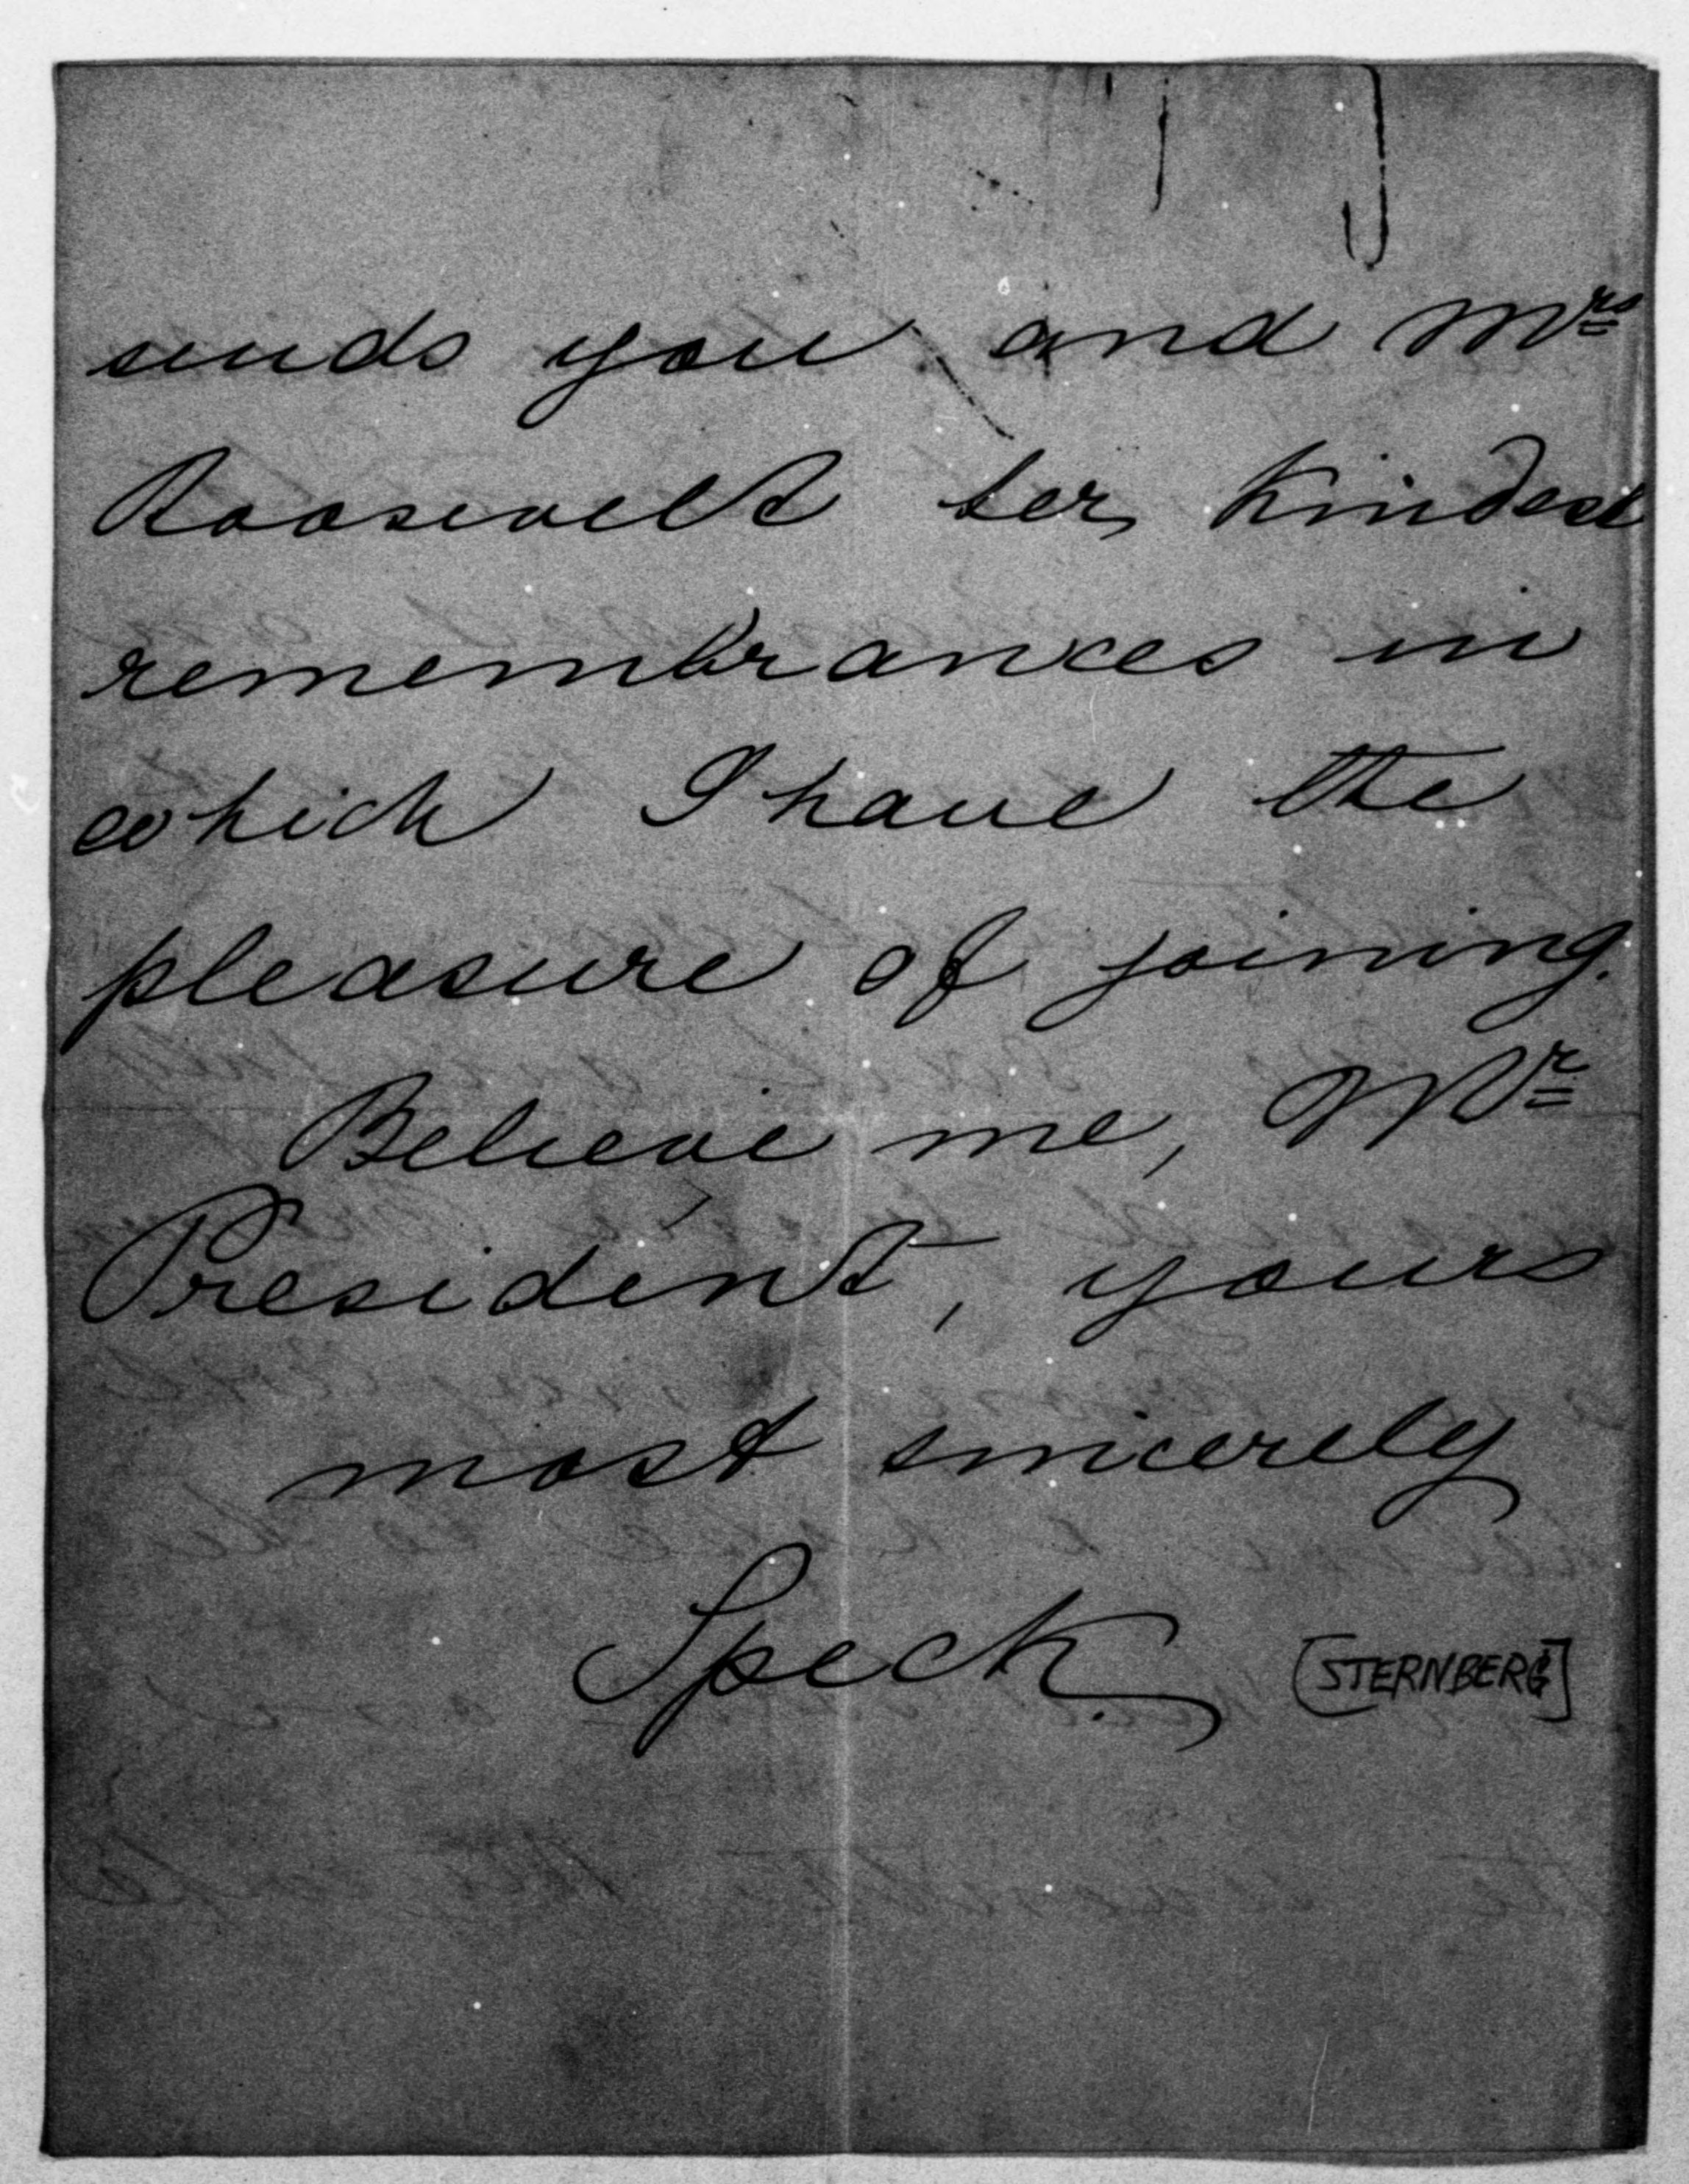 sends you and Mrs
Roosevelt her kindest
remembrances in
which I have the
pleasure of joining.
Believe me, Mr
President, yours
most sincerely
Speck. [STERNBERG]